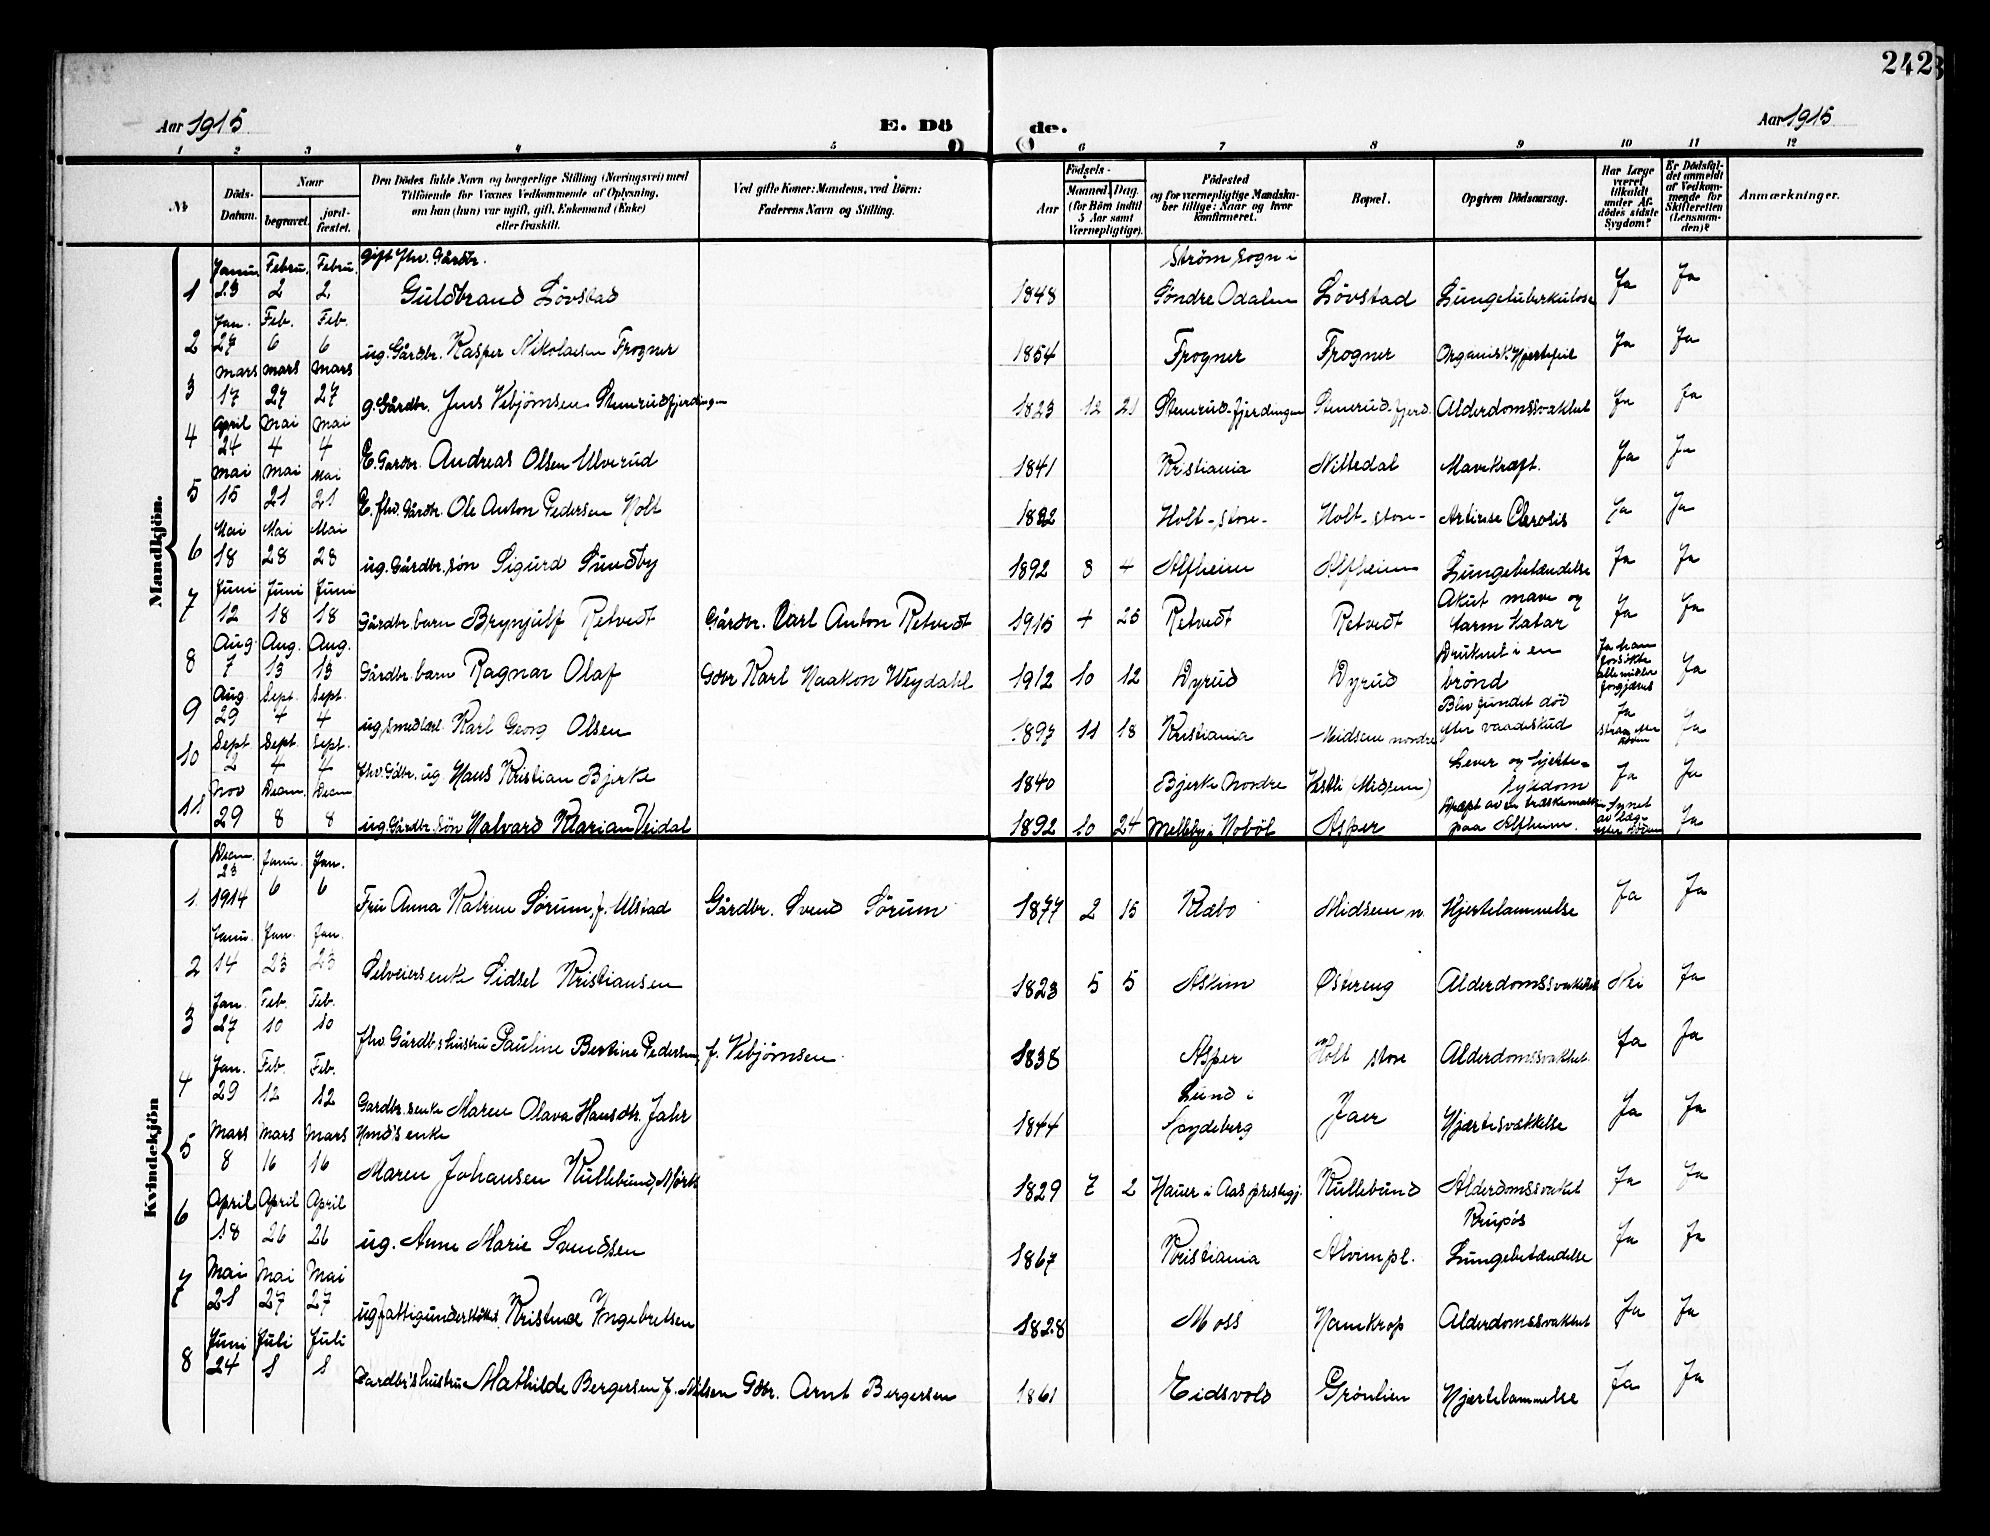 242
Aar 1915
E. Dö
de.
Aar 1915
1 2 3 4 5 6 7 8 9 10 11 12
№
Döds-Datum.
Naar
begravet.
jord-fæstet.
Den Dödes fulde Navn og borgerlige Stilling (Næringsvei) med
Tilföiende for Voxnes Vedkommende af Oplysning,
om han (hun) var ugift, gift, Enkemand (Enke)
eller fraskilt.
Ved gifte Koner: Mandens, ved Börn:
Faderens Navn og Stilling.
Födsels-
Aar
Maaned
Dag.
(for Börn indtil
5 Aar samt
Værnepligtige).
Födested
og for værnepligtige Mandska-
ber tillige: Naar og hvor
konfirmeret.
Bopæl.
Opgiven Dödsaarsag.
Har Læge
været
tilkaldt
under Af-
dödes sidste
Sygdom?
Er Dödsfal-
det anmeldt
af Vedkom-
mende for
Skifteretten
(Lensman-
den)?
Anmærkninger.
Mandkjön.
1 Janu. 23 Febru. 2 Febru. 2 Gift fhv. Gårdbr. Guldbrand Lövstad 1848 Ström sogn i Söndre Odalen Lövstad Lungetuberkulose Ja Ja
2 Jan. 27 Feb. 6 Feb. 6 ug. Gårdbr. Kasper Nikolaisen Frogner 1854 Frogner Frogner Organisk Hjertefeil Ja Ja
3 mars 17 mars 27 mars 27 g. Gårdbr. Jens Vebjørnsen Stenrudfjerdingen 1823 12 21 Stenrud-fjerdingen Stenrud-fjerd. Alderdomssvakhet Ja Ja
4 april 24 mai 4 mai 4 E. Gardbr. Andreas Olsen Ulverud 1841 Kristiania Nittedal Mavekræft. Ja Ja
5 mai 15 mai 21 mai 21 E. fhv. Gårdbr. Ole Anton Pedersen Holt Holt-store- Holt-store- Ja Ja
6 Mai 18 Mai 28 Mai 28 ug. Gårdbr. søn Sigurd Sundby 1892 3 4 Alfheim Alfheim Lungebetændelse Ja Ja
7 Juni 12 Juni 18 Juni 18 Gårdbr. barn Brynjulf Retvedt Gårdbr. Carl Anton Retvedt 1915 4 25 Retvedt Retvedt Akut mave og tarm Katar Ja Ja
8 Aug. 7 Aug. 13 Aug. 13 Gårdbr. barn Ragnar Olaf Gdbr Karl Haakon Weydahl 1912 10 12 Dyrud Dyrud Druknet i en brönd Ja Ja
9 Aug 29 Sept. 4 Sept. 4 ug. smedlærl. Karl Georg Olsen 1897 11 18 Kristiania Midsem nordre Blev fundet död efter vaadeskud Ja Ja
10 Sept 2 Sept. 4 Sept. 4 fhv. Gdbr. ug Hans Kristian Bjerke 1840 Bjerke Nordre Lever og hjerte-sykdom Ja Ja
11 Nov 29 Decem. 8 Decem 8 ug. Gårdbr. søn Halvard Klarian Veidal 1892 10 24 Melleby i Hobøl Asper Dræpt av en træskemaskin paa Alfheim. Synet av læge efter døden Ja
Kvindekjön
1 Decem. 23 1914 Janu. 6 Jan. 6 Fru Anna Katrine Sørum, f. Ulstad Gårdbr. Svend Sørum 1877 2 15 Klæbo Midsem n. Hjertelammelse Ja Ja
2 Janu. 14 Jan. 23 Jan. 23 Selveiersenke Sidsel Kristiansen 1823 5 5 Askim Østereng Alderdomssvakhet Nei Ja
3 Jan. 27 Feb. 10 Feb. 10 fhv. Gårdb.shustru Pauline Bertine Pedersen, f. Vebjørnsen. 1838 Asper Holt store Alderdomssvakhet. Ja Ja
4 Jan. 29 Feb. 12 Feb. 12 Gardbr.senke Maren Olava Hansdtr. Jahr 1844 Lund i Spydeberg Jaer Hjærtesvækkelse Ja Ja
5 Mars 8 Mars 16 Mars 16 Hmd's enke Maren Johansen Kullebund, Mørk 1829 7 2 Hauer i Aas prestegj. Kullebund Alderdomssvakhet Ja Ja
6 April 18 April 26 April 26 ug. Anne Marie Svendsen 1867 Kristiania Alvimpl. Krupøs Lungebetændelse Ja Ja
7 Mai 21 Mai 27 Mai 27 ug fattigunderstøttet, Kristine Yngebretsen 1828 Moss Alderdomssvakhet Ja Ja
8 Juni 24 Juli 1 Juli 1 Gardbr's hustru Mathilde Bergersen f. Nilsen Gdbr. Arnt Bergersen 1861 Eidsvold Grønlien Hjærtelammelse Ja Ja